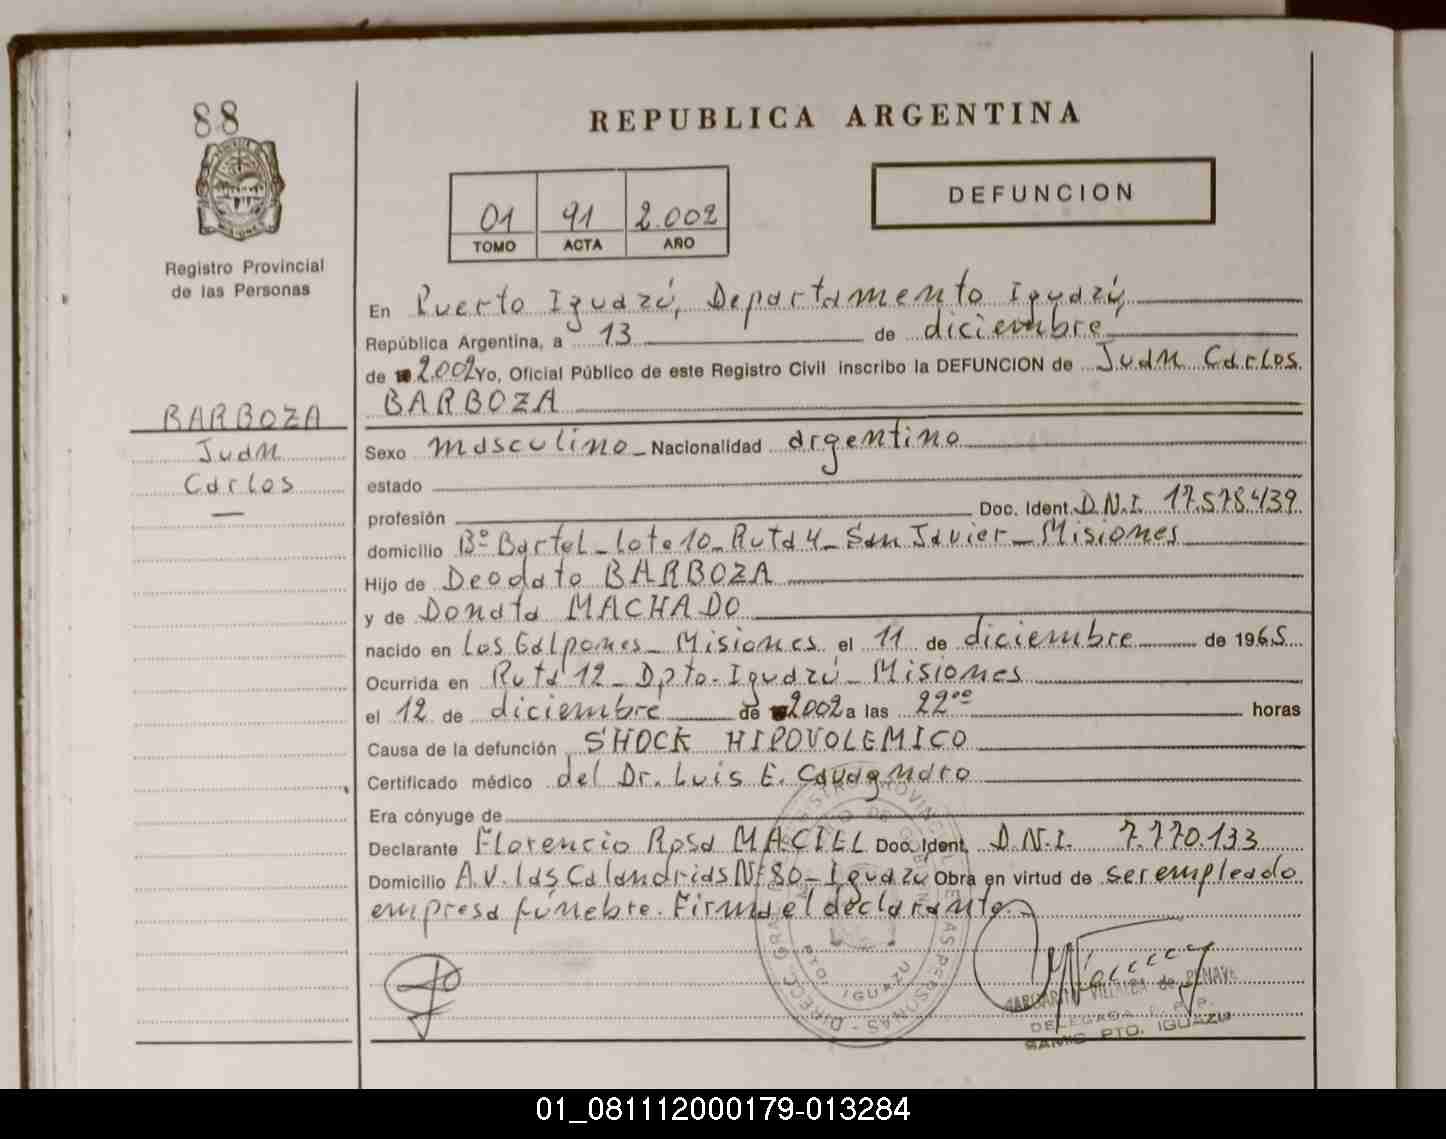 88
REPUBLICA ARGENTINA
DEFUNCION
01 91 2.002
TOMO ACTA AÑO
Registro Provincial
de las Personas
En Puerto Iguazú, Departamento Iguazú,
República Argentina, a 13 de diciembre
de 2.002 Yo, Oficial Público de este Registro Civil inscribo la DEFUNCION de Juan Carlos
BARBOZA
BARBOZA
Juan
Carlos
Sexo masculino Nacionalidad argentino
estado
profesión Doc. Ident. D.N.I. 17.578.439
domicilio Bº Bartel - lote 10 - Ruta 4 - San Javier - Misiones
Hijo de Deodato BARBOZA
y de Donata MACHADO
nacido en Los Galpones - Misiones el 11 de diciembre de 1965
Ocurrida en Ruta 12 - Dpto. Iguazú - Misiones
el 12 de diciembre de 2002 a las 22⁰⁰ horas
Causa de la defunción SHOCK HIPOVOLEMICO
Certificado médico del Dr. Luis E. Cavagnaro
Era cónyuge de
Declarante Florencio Rosa MACIEL Doc. Ident. D.N.I. 7.770.133
Domicilio A.V. las Calandrias Nº 80 - Iguazú Obra en virtud de ser empleado
empresa fúnebre. Firma el declarante.
PTO. IGUAZU
MARGARITA VILLALBA de PENAYO
DELEGADA
PTO. IGUAZU
01_081112000179-013284